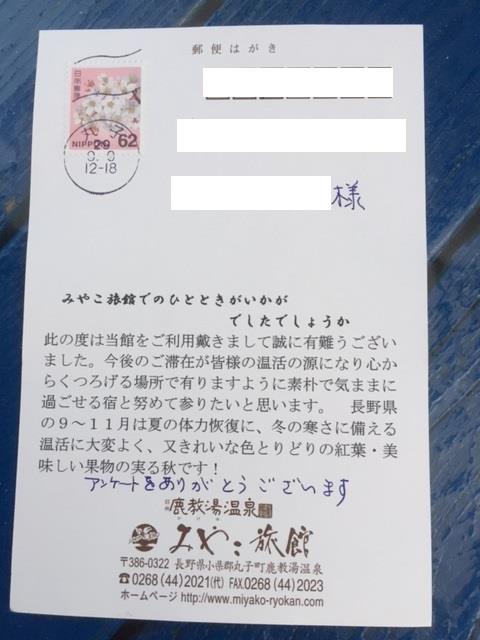 郵便はがき
日本郵便
62
NIPPON
29
12-18
様
みやこ旅館でのひとときがいかが
でしたでしょうか
此の度は当館をご利用戴きまして誠に有難うござい
ました。今後のご滞在が皆様の温活の源になり心か
らくつろげる場所で有りますように素朴で気ままに
過ごせる宿と努めて参りたいと思います。　長野県
の９～１１月は夏の体力恢復に、冬の寒さに備える
温活に大変よく、又きれいな色とりどりの紅葉・美
味しい果物の実る秋です！
アンケートをありがとうございます
信州 鹿教湯温泉
みやこ旅館
〒386-0322 長野県小県郡丸子町鹿教湯温泉
☎0268(44)2021(代) FAX.0268(44)2023
ホームページ http://www.miyako-ryokan.com